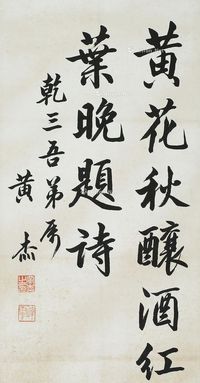 黄花秋釀酒紅
葉晚題詩
乾三吾弟屬
黄杰